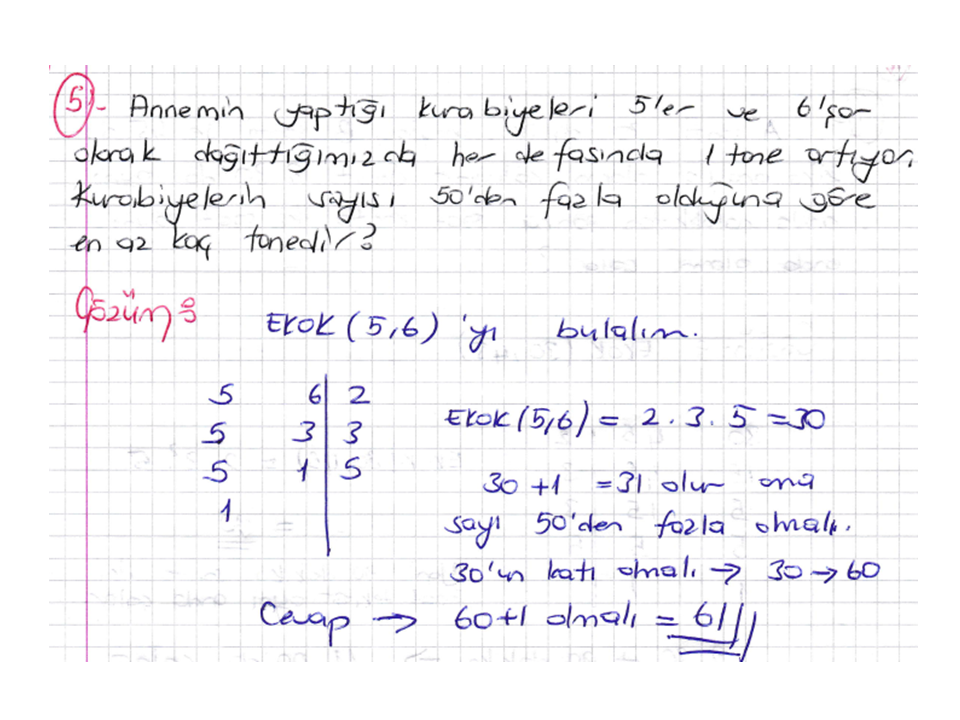 5)- Annemin yaptığı kurabiyeleri 5'er ve 6'şar
olarak dağıttığımızda her defasında 1 tane artıyor.
Kurabiyelerin sayısı 50'den fazla olduğuna göre
en az kaç tanedir?
Çözüm:
EKOK (5,6) 'yı bulalım.
5 6 | 2
5 3 | 3
5 1 | 5
1
EKOK (5,6) = 2 . 3 . 5 = 30
30 +1 = 31 olur ama
sayı 50'den fazla olmalı.
30'un katı olmalı → 30 → 60
Cevap → 60+1 olmalı = 61